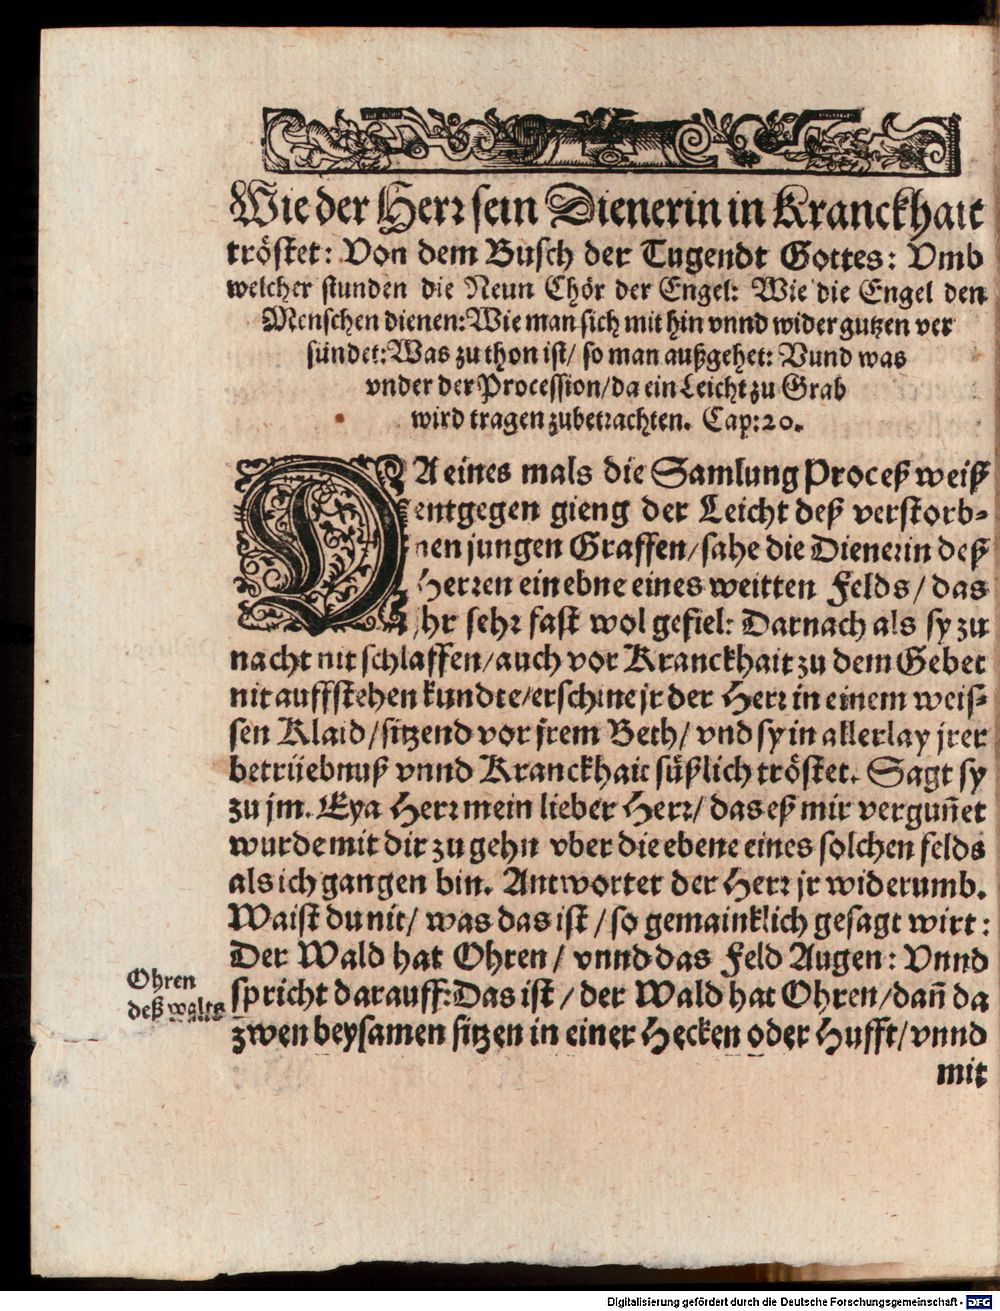 Wie der Herr sein Dienerin in Kranckhait
tröstet: Von dem Busch der Tugendt Gottes: Vmb
welcher stunden die Neun Chör der Engel: Wie die Engel den
Menschen dienen: Wie man sich mit hin vnnd wider gutzen ver
sündet: Was zu thon ist/ so man außgehet: Vund was
vnder der Procession/ da ein Leicht zu Grab
wird tragen zubetrachten. Cap: 20.
DA eines mals die Samlung Proceß weiß
entgegen gieng der Leicht deß verstorb-
nen jungen Graffen/ sahe die Dienerin deß
Herren ein ebne eines weitten Felds/ das
jhr sehr fast wol gefiel: Darnach als sy zu
nacht nit schlaffen/ auch vor Kranckhait zu dem Gebet
nit auffstehen kundte/ erschine jr der Herr in einem weis-
sen Klaid/ sitzend vor jrem Beth/ vnd sy in allerlay jrer
betrüebnuß vnnd Kranckhait süßlich tröstet. Sagt sy
zu jm. Eya Herr mein lieber Herr/ das eß mir vergun̄et
wurde mit dir zu gehn vber die ebene eines solchen felds
als ich gangen bin. Antwortet der Herr jr widerumb.
Waist du nit/ was das ist/ so gemainklich gesagt wirt:
Der Wald hat Ohren/ vnnd das Feld Augen: Vnnd
spricht darauff: Das ist/ der Wald hat Ohren/ dan̄ da
zwen beysamen sitzen in einer Hecken oder Hufft/ vnnd
mit
Ohren
deß walts
Digitalisierung gefördert durch die Deutsche Forschungsgemeinschaft - DFG